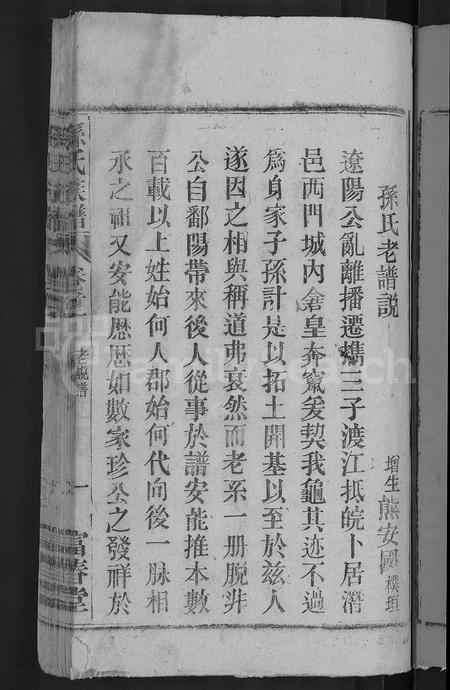 孫氏老譜説
增生熊安國樸垣
遼陽公亂離播遷攜三子渡江抵皖卜居潛
邑西門城内倉皇奔竄爰契我龜其迹不過
為身家子孫計是以拓土開基以至於兹人
遂因之相與稱道弗衰然而老系一册脱非
公自鄱陽帶來後人從事於譜安能推本數
百載以上姓始何人郡始何代向後一脉相
承之祖又安能歷歷如數家珍公之發祥於
孫氏族譜 卷首 老説譜 一 富春堂